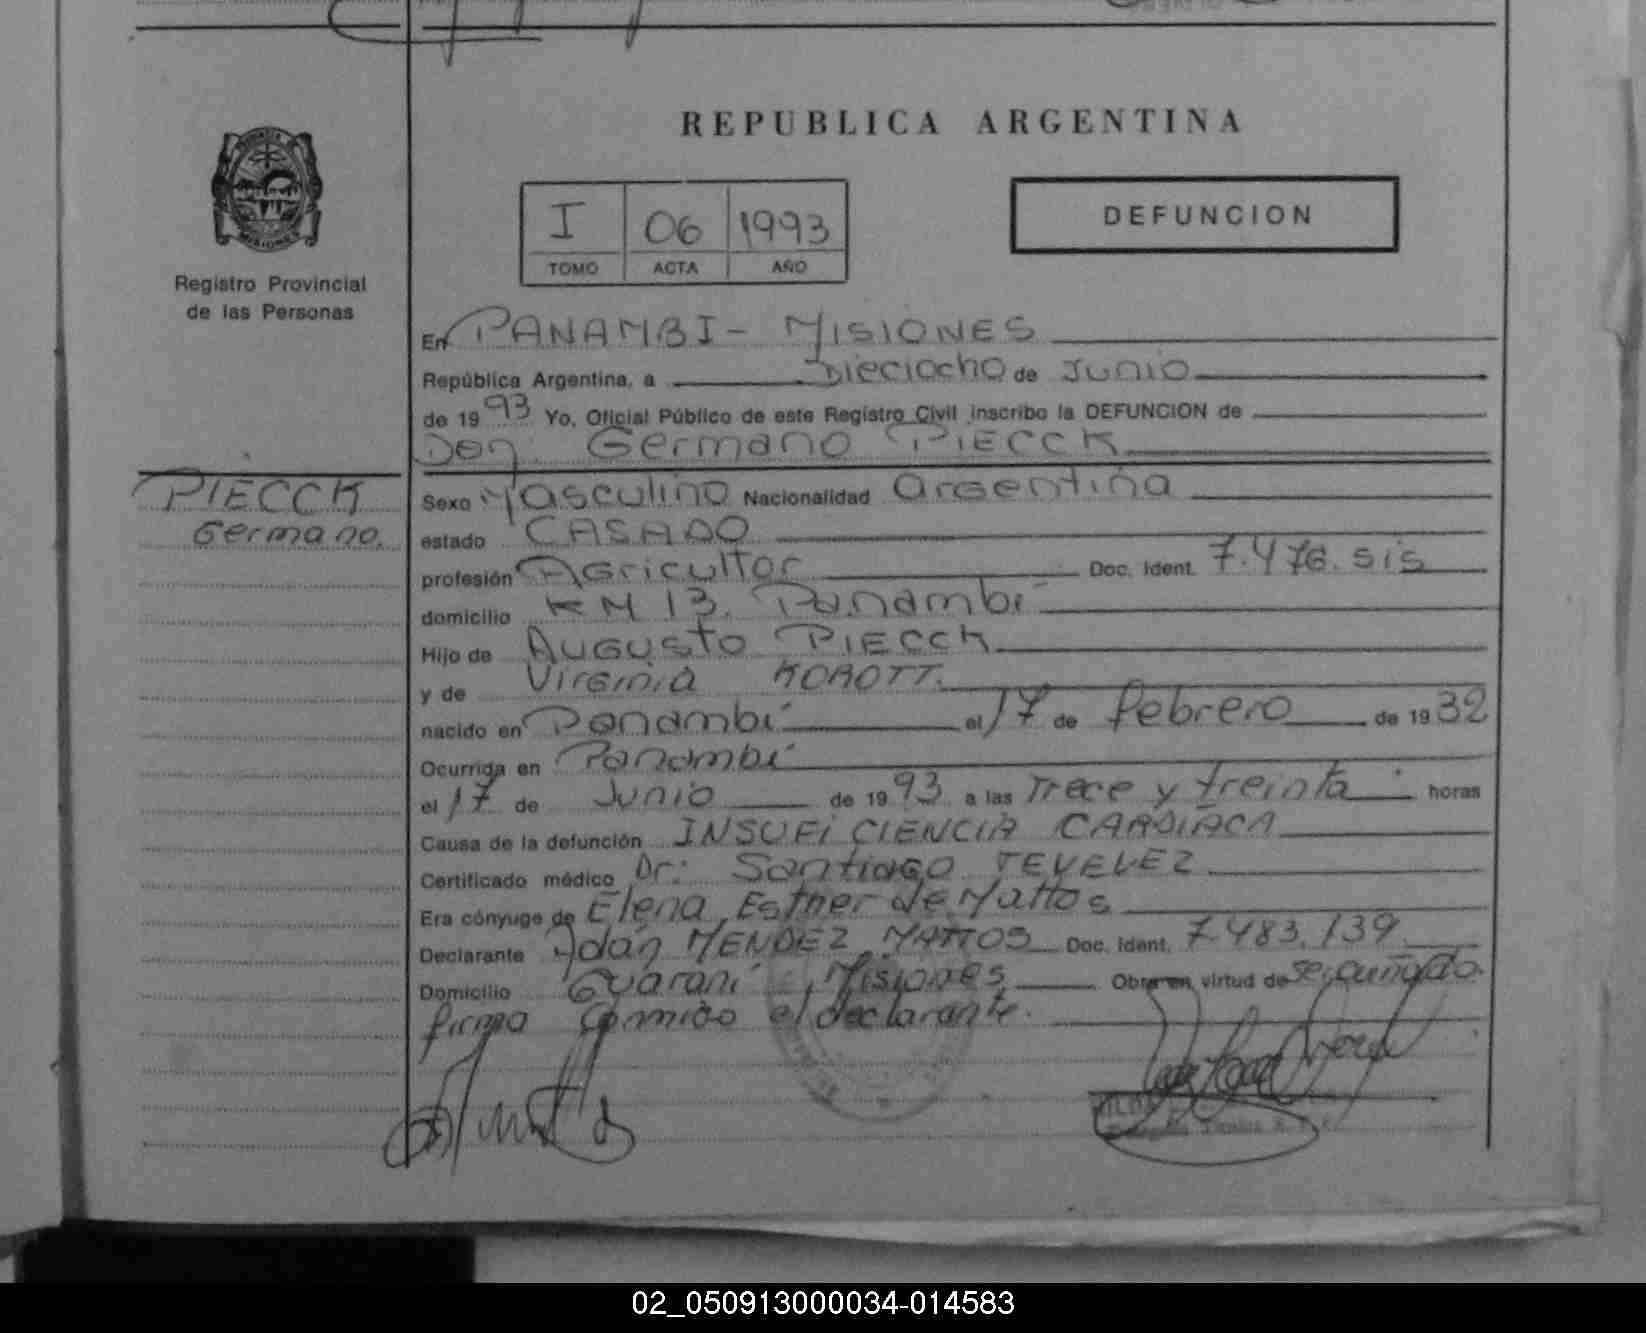 REPUBLICA ARGENTINA
MISIONES
Registro Provincial
de las Personas
I 06 1993
TOMO ACTA AÑO
DEFUNCION
En PANAMBI - MISIONES
República Argentina, a Dieciocho de Junio
de 19 93 Yo, Oficial Público de este Registro Civil inscribo la DEFUNCION de
Don Germano PIECCK
PIECCK
Germano.
Sexo Masculino Nacionalidad Argentina
estado CASADO
profesión Agricultor Doc. Ident. 7.476.515
domicilio KM 13. Panambí
Hijo de Augusto PIECCK
y de Virginia KOROTT.
nacido en Panambí el 17 de febrero de 19 32
Ocurrida en Panambí
el 17 de Junio de 19 93 a las Trece y treinta horas
Causa de la defunción INSUFICIENCIA CARDIACA
Certificado médico Dr: Santiago TEVELEZ
Era cónyuge de Elena Esther de Mattos
Declarante Adán MENDEZ MATTOS Doc. Ident. 7.483.139
Domicilio Guaraní Misiones Obra en virtud de ser cuñado.
firma conmigo el declarante.
02_050913000034-014583